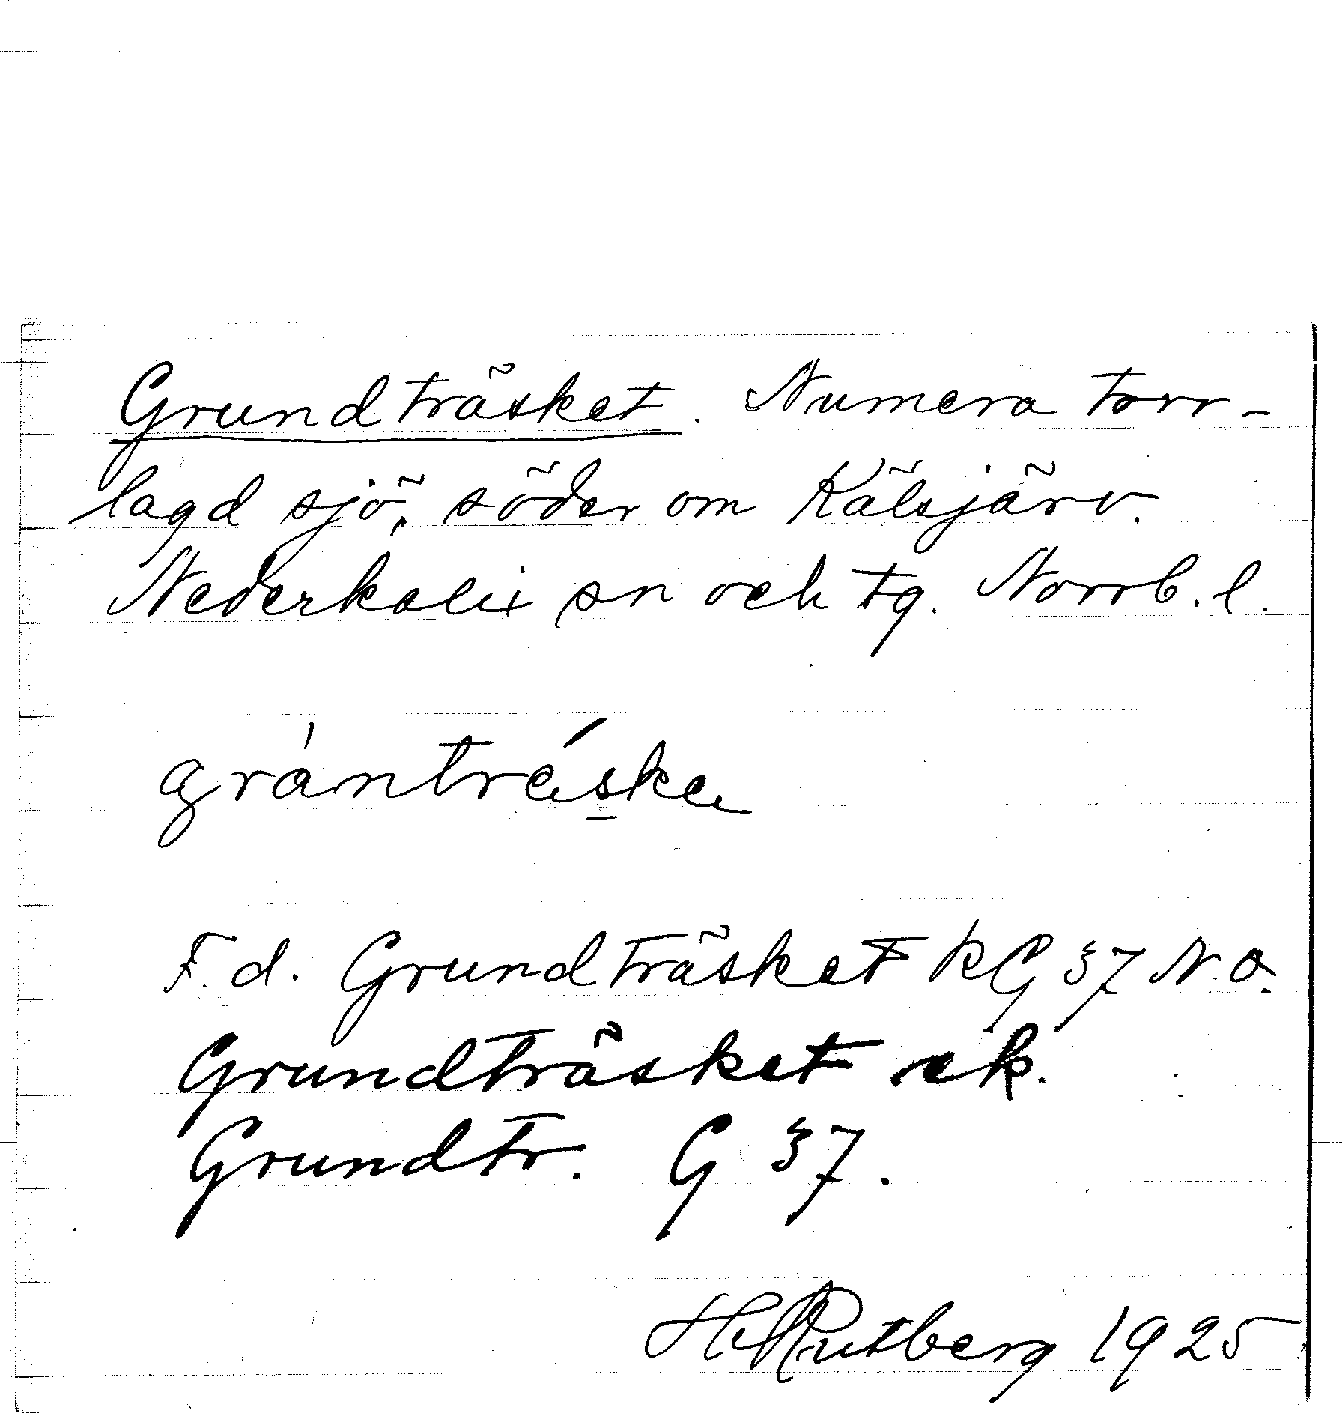 Grundträsket. Numera torr-
lagd sjö, söder om Kälsjärv.
Nederkalix sn och tg. Norrb. l.
grànträ́ska
F. d. Grundträsket KG 37 NO.
Grundträsket ek.
Grundtr. G 37.
Rutberg 1925